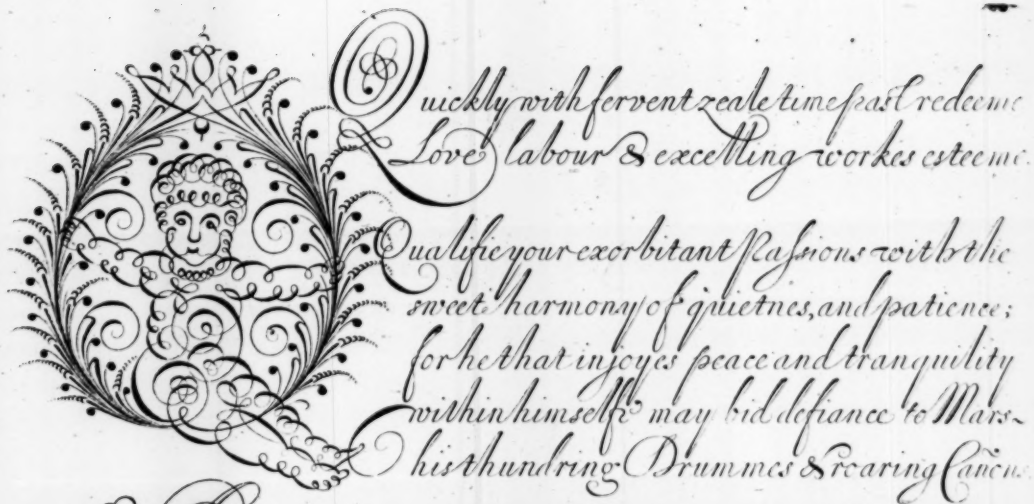 Quickly with fervent zeale time past redeeme
Love labour & excelling workes esteeme.
Qualifie your exorbitant Passions with the
sweet harmony of quietnes, and patience;
for he that injoyes peace and tranquility
within himselfe may bid defiance to Mars-
his thundring Drummes & roaring Cañons